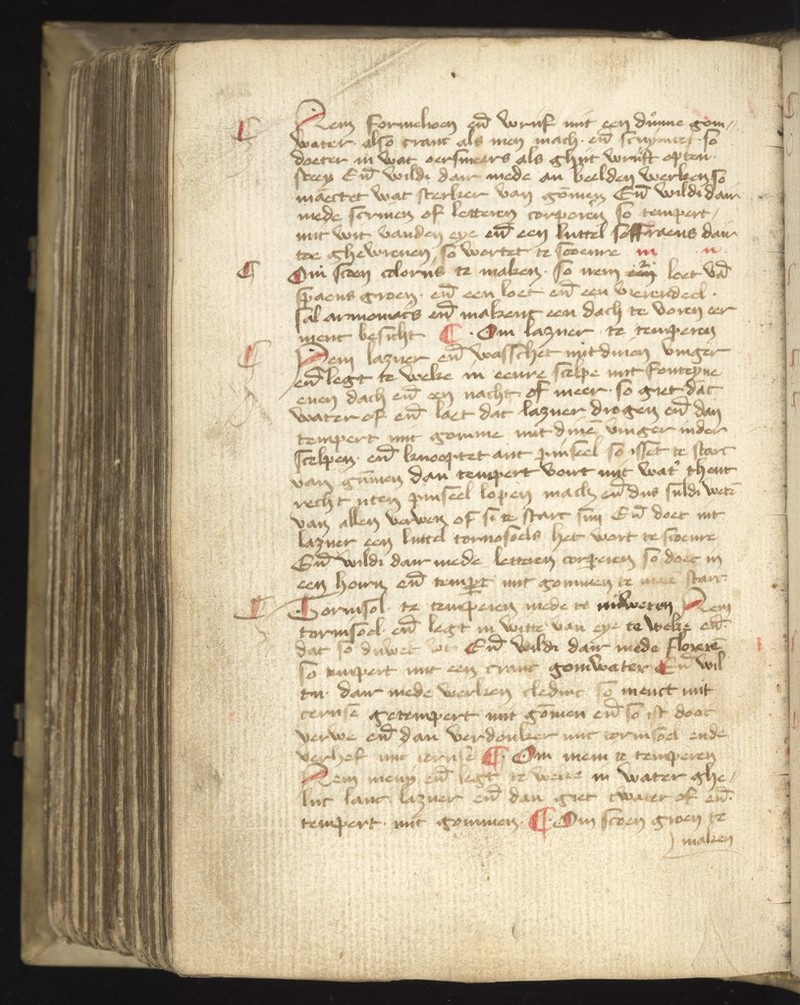 Nem formelioen en̄ wrijf mit een dunne gom/
water · also cranc als men mach · en̄ scrymter · so
doeter in wat oersmeers als ghijt wrijft opten ·
steen En̄ wildi dair mede an beelden werken so
maectet wat sterker van gōmen En̄ wildi dair
mede scriuen of letteren corporen so tempert /
mit wit vanden eye en̄ een luttel soffraens dair
toe ghewreuen / so wortet te scoenre
¶ Om scoen colorus te maken · so nem loet vā
spaens groen · en̄ een loet en̄ een vierendeel ·
sal armoniacs en̄ makent een dach te voren eer
ment besicht ¶ · Om lazuer · te temperen
¶ Nem lazuer en̄ wasschet mit dinen vinger
en̄ legt te weke in eenre scelpe mit fonteyne
enen dach en̄ een nacht of meer · so giet dat
water of en̄ laet dat lazuer drogen en̄ dan
tempert mit gomme mit dinē vinger inder
scelpen · en̄ knoopet ant pinseel so isset te starc
van gūmen dan tempert voirt mit wat' thent
recht uten pinseel lopen mach en̄ dus suldi wetē
van allen verwen of si te starc sijn En̄ doet int
lazuer een luttel tornosoels het wort te scoenre
En̄ wildi dair mede letteren corperen so doet in
een hoirn en̄ tempert mit gommen te mae starc
¶ Tornisol · te temperen mede te Nem
tornisoel · en̄ legt in witte van eye te weke en̄
dat so duwet wt · En̄ wildi dair mede floreren
so tempert mit een cranc gomwater En̄ wil
tu · dair mede werken cledinc so menct mit
ceruse getempert mit gōmen en̄ so ist doot
verwe en̄ dan verdonker mit tornisoel ende
verhof mit ceruse ¶ · Om meni te temperen
Nem meny en̄ legt te weke in water ghe /
lijc lanc lazuer en̄ dan giet twater of en̄ ·
tempert · mit gommen · ¶ · Om scoen groen te
maken